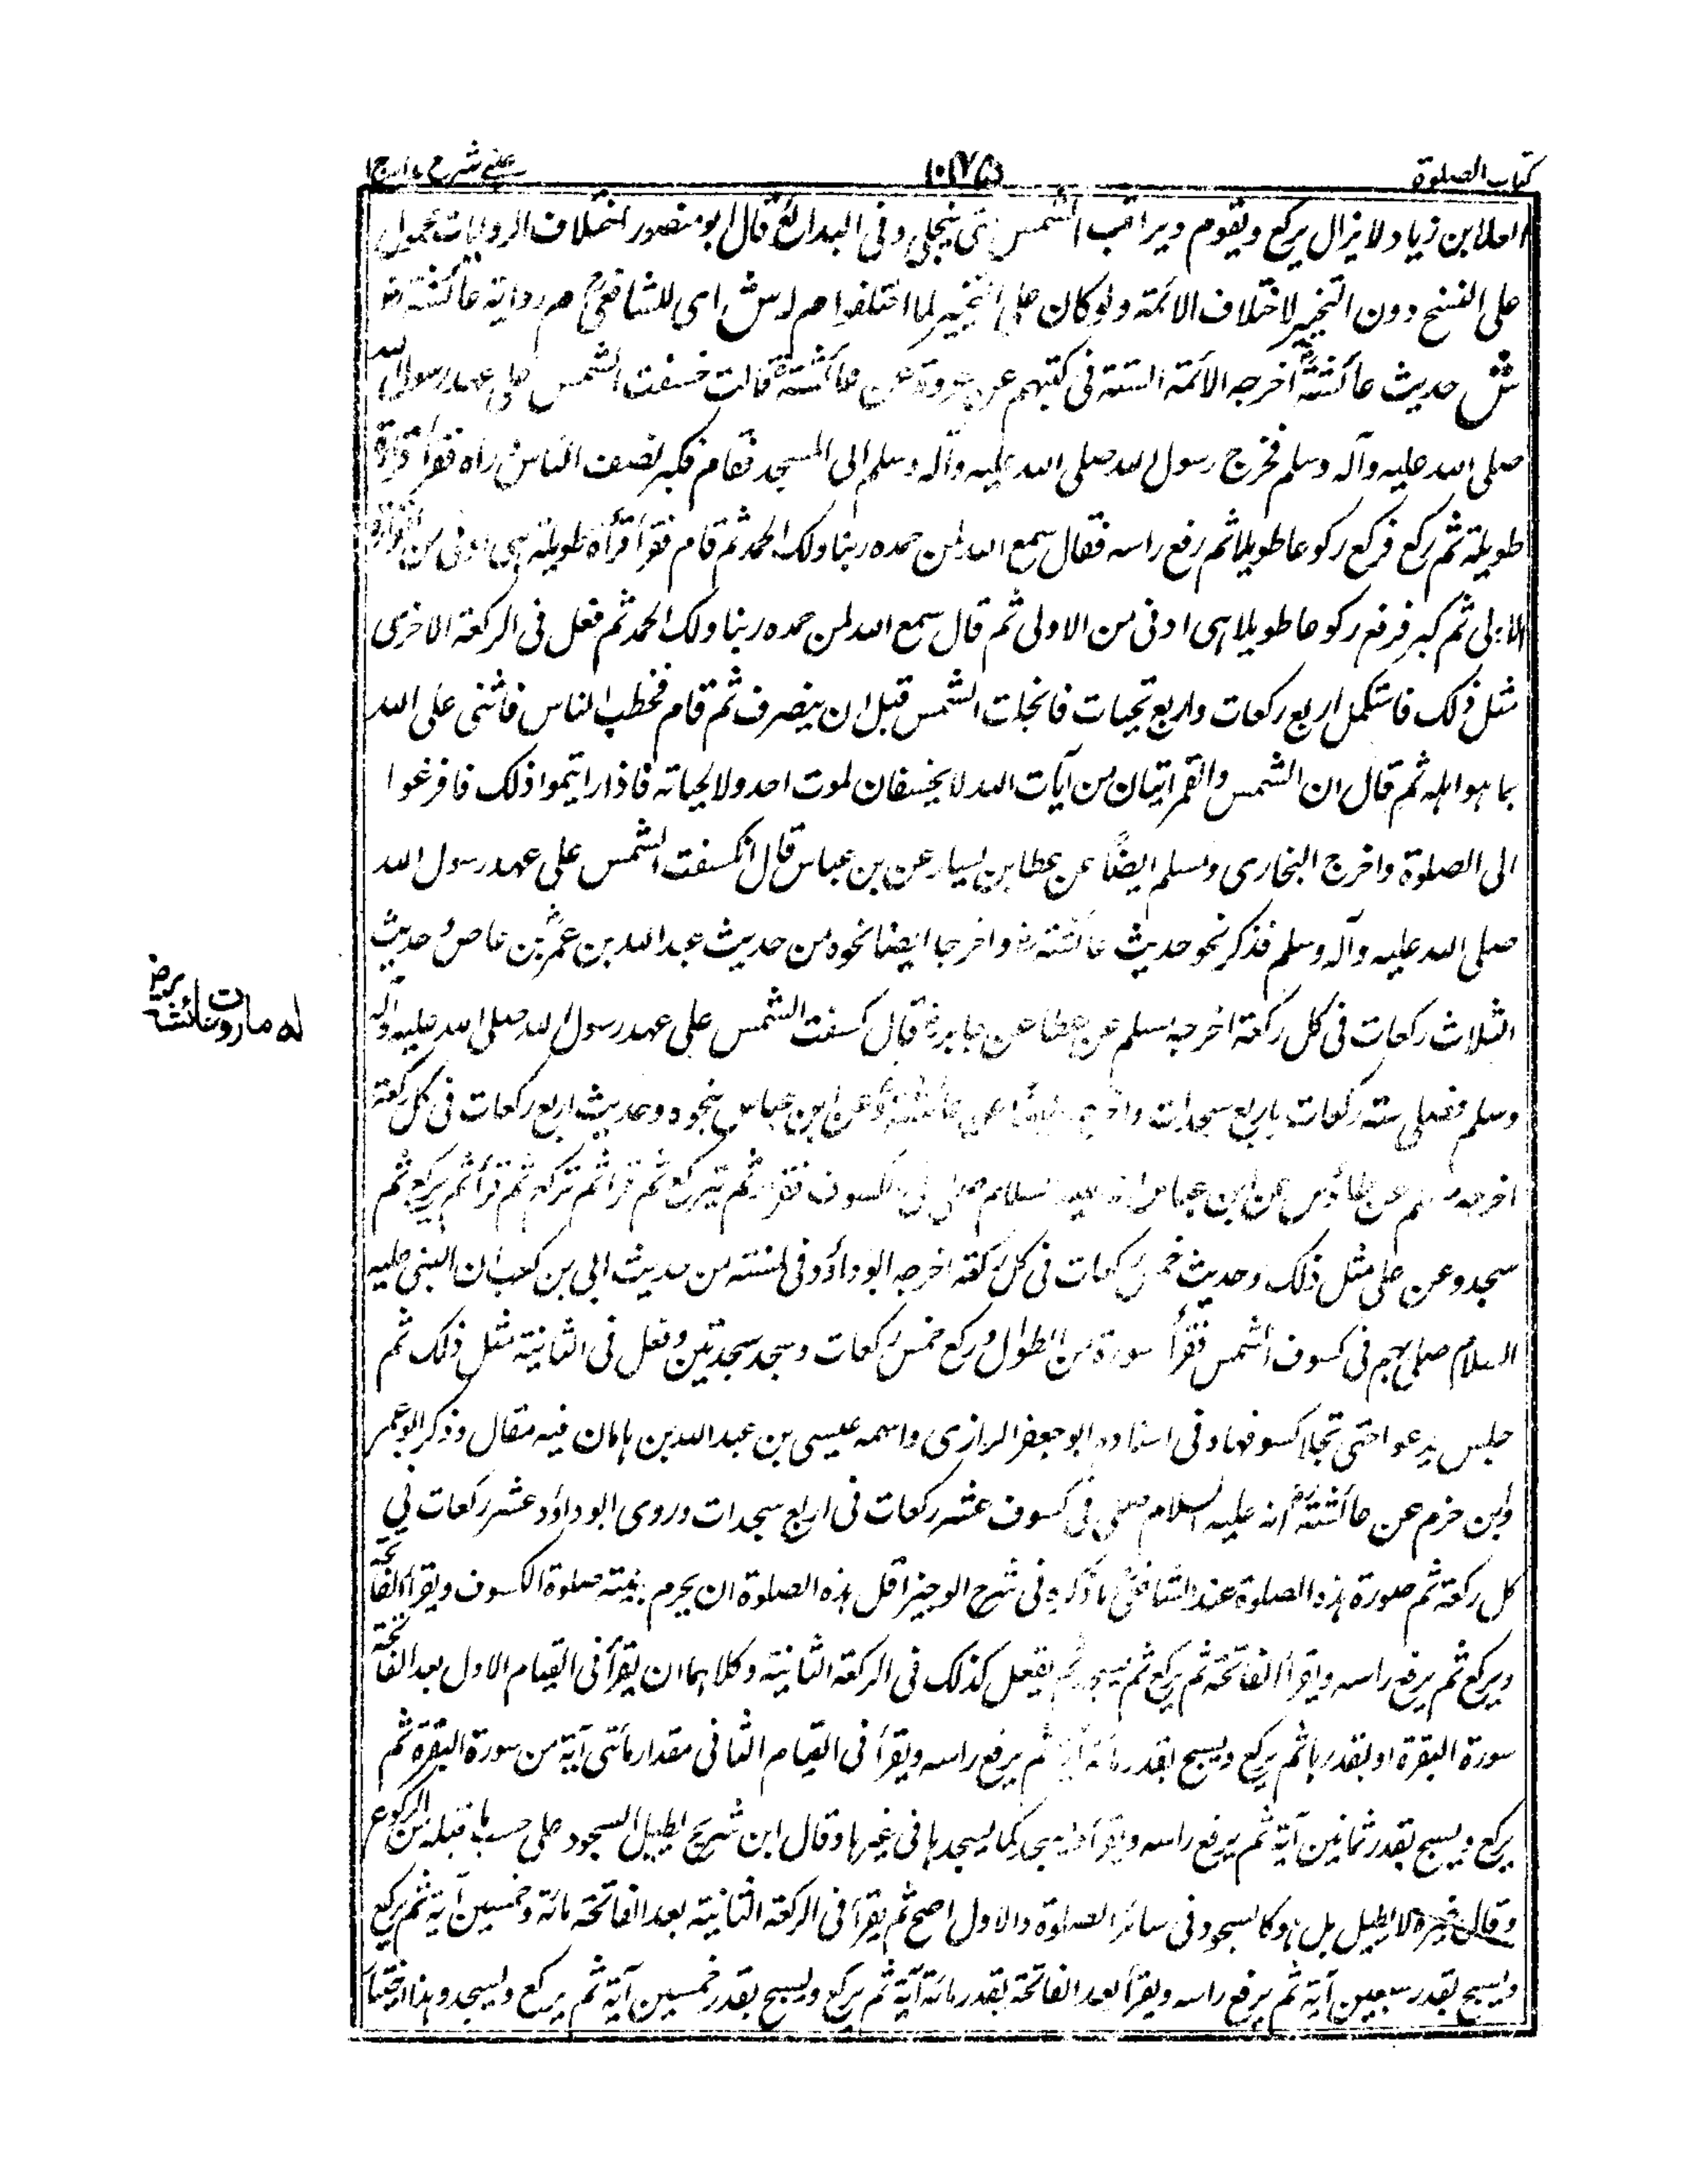 كتاب الصلوة
١٠٧٥
عينى شرح هداية ج١
العلاء بن زياد لا يزال يركع ويقوم ويراقب الشمس حتى ينجلى وفى البدائع قال ابو منصور اختلاف الروايات محمول
على النسخ دون التخيير لاختلاف الائمة ولو كان على التخيير لما اختلفوا م له ش اى للشافعى م رواية عائشة رض
ش حديث عائشة اخرجه الائمة الستة فى كتبهم عن عروة عن عائشة قالت خسفت الشمس على عهد رسول الله
صلى الله عليه وآله وسلم فخرج رسول الله صلى الله عليه وآله وسلم الى المسجد فقام فكبر فصف الناس وراه فقرأ قراءة
طويلة ثم ركع فركع ركوعا طويلا ثم رفع راسه فقال سمع الله لمن حمده ربنا ولك الحمد ثم قام فقرأ قرأة طويلة هى ادنى من القراءة
الاولى ثم كبر فرفع ركوعا طويلا هى ادنى من الاولى ثم قال سمع الله لمن حمده ربنا ولك الحمد ثم فعل فى الركعة الاخرى
مثل ذلك فاستكمل اربع ركعات واربع سجدات فانجلت الشمس قبل ان ينصرف ثم قام فخطب الناس فاثنى على الله
بما هو اهله ثم قال ان الشمس والقمر ايتان من آيات الله لا يخسفان لموت احد ولا لحياته فاذا رايتموا ذلك فافرغوا
الى الصلوة واخرج البخارى ومسلم ايضًا عن عطا بن يسار عن بن عباس قال انكسفت الشمس على عهد رسول الله
صلى الله عليه وآله وسلم فذكر نحو حديث عائشة رض واخرجا ايضا نحوه من حديث عبدالله بن عمر بن عاص وحديث
الثلاث ركعات فى كل ركعة اخرجه مسلم عن عطا عن جابر رض قال كسفت الشمس على عهد رسول الله صلى الله عليه وآله
وسلم فصلى ستة ركعات باربع سجدات واخرج ايضًا عن عائشة وعن ابن عباس نحوه وحديث اربع ركعات فى كل ركعة
اخرجه مسلم عن طاؤس عن ابن عباس انه عليه السلام صلى فى كسوف فقرأ ثم ركع ثم قرا ثم ركع ثم قرأ ثم ركع ثم
سجد وعن على مثل ذلك وحديث خمس ركعات فى كل ركعة اخرجه ابو داؤد فى سننه من حديث ابى بن كعب ان النبى عليه
السلام صلى بهم فى كسوف الشمس فقرأ سورة من الطوال وركع خمس ركعات وسجد سجدتين وفعل فى الثانية مثل ذلك ثم
جلس يدعو حتى تجلا كسوفها وفى اسناده ابو جعفر الرازى واسمه عيسى بن عبدالله بن ماهان فيه مقال وذكر ابو عمر
وابن حزم عن عائشة انه عليه السلام صلى فى كسوف عشر ركعات فى اربع سجدات وروى ابو داؤد عشر ركعات فى
كل ركعة ثم صورة هذه الصلوة عند الشافعى ما ذكره فى شرح الوجيز اقل هذه الصلوة ان يحرم بنية صلوة الكسوف ويقرأ الفاتحة
ويركع ثم يرفع راسه ويقرأ الفاتحة ثم يركع ثم يسجد ثم يفعل كذلك فى الركعة الثانية وكلاهما ان يقرأ فى القيام الاول بعد الفاتحة
سورة البقرة او بقدرها ثم يركع ويسبح بقدر مائة آية ثم يرفع راسه ويقرأ فى القيام الثانى مقدار مأتى آية من سورة البقرة ثم
يركع ويسبح بقدر ثمانين آية ثم يرفع راسه ويقرأ يسجد كما يسجدها فى غيرها وقال ابن شريح يطيل السجود على حسب ما قبله من الركوع
وقال غيره لا يطيل بل هو كالسجود فى سائر الصلوة والاول اصح ثم يقرأ فى الركعة الثانية بعد الفاتحة مائة وخمسين آية ثم يركع
ويسبح بقدر سبعين آية ثم يرفع راسه ويقرأ بعد الفاتحة بقدر مائة آية ثم يركع ويسبح بقدر خمسين آية ثم يركع ويسجد وهذا
له ما روت عائشة رض